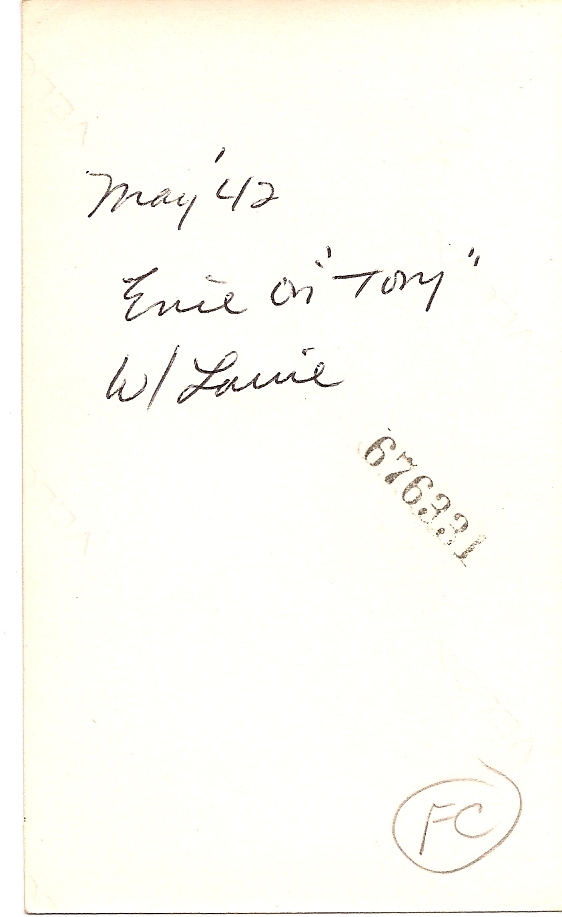 May '42
Ernie on "Tony"
w/ Louie
676331
FC